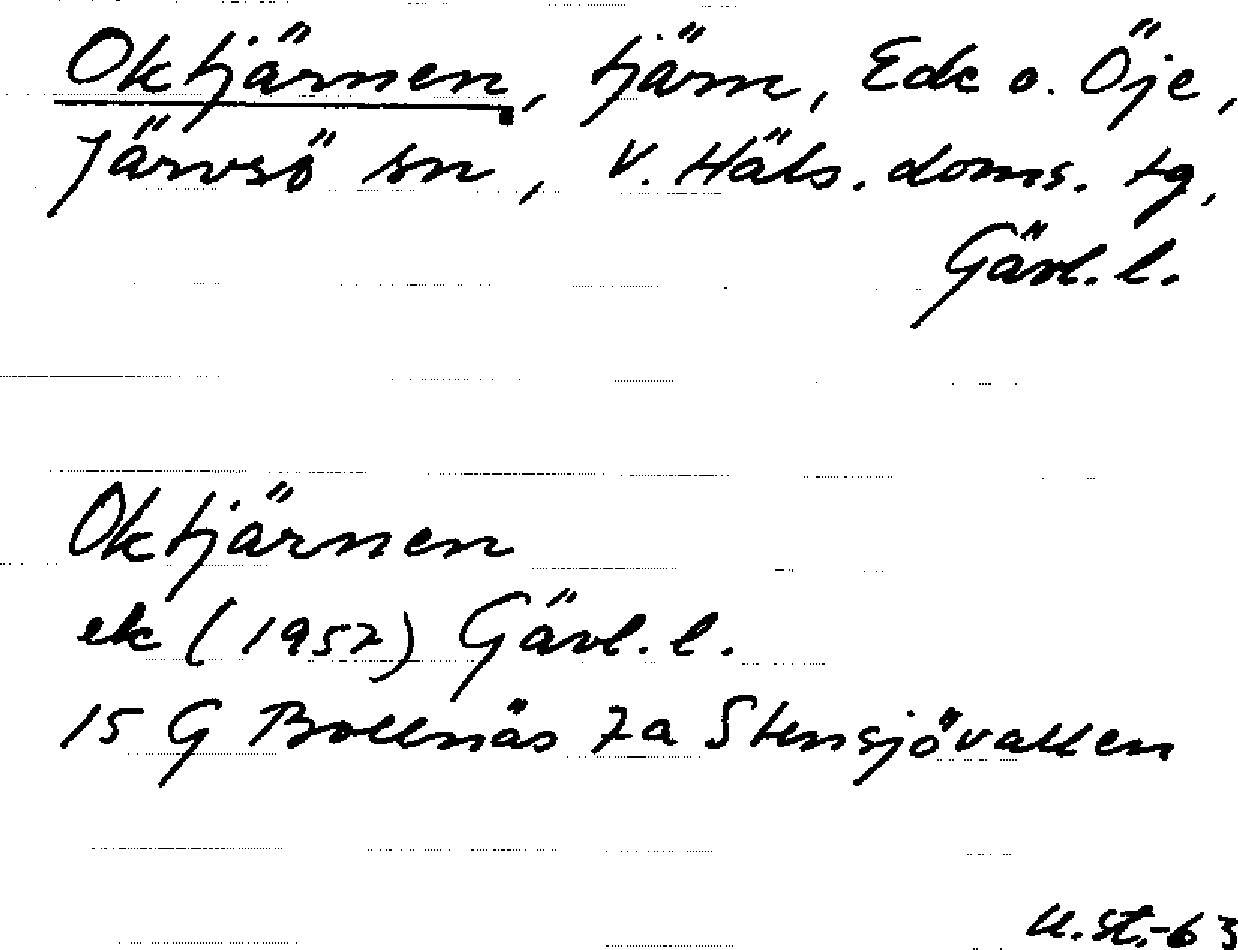 Oktjärnen, tjärn, Ede o. Öje,
Järvsö sn, V. Häls. doms. tg,
Gävl. l.
Oktjärnen
ek (1957) Gävl. l.
15 G Bollnäs 7a Stensjövallen
U. St.-63